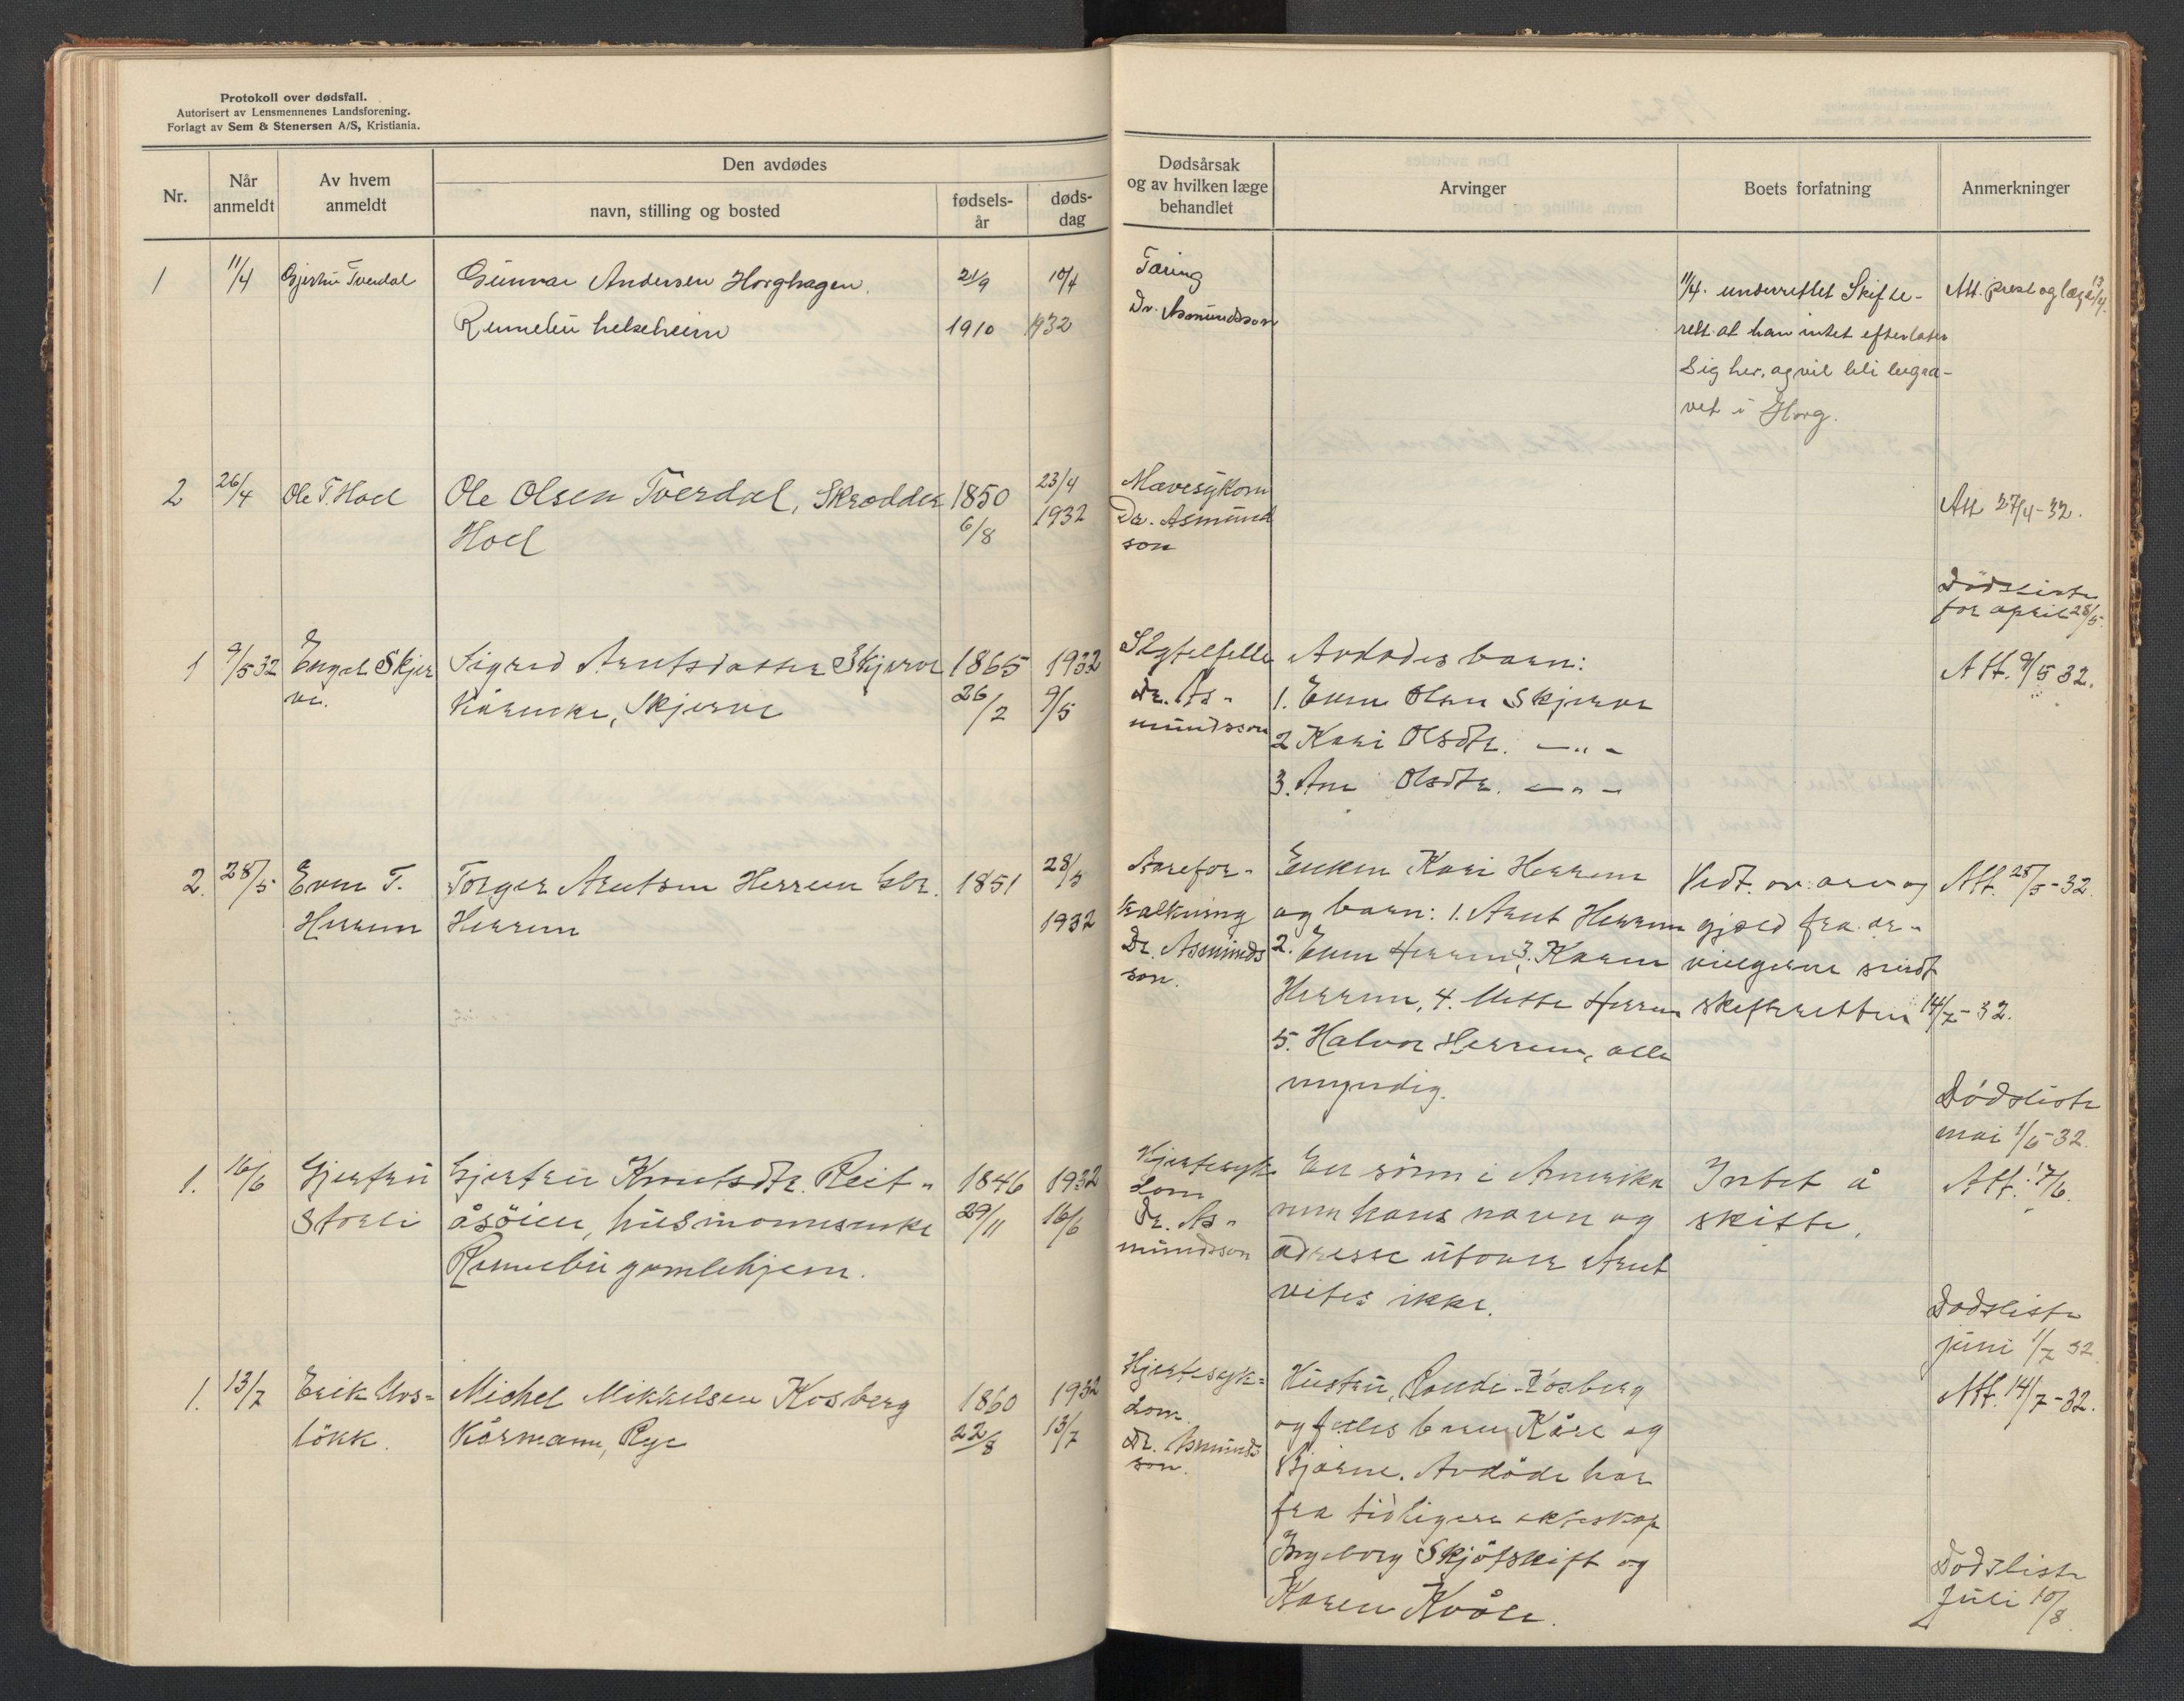 Protokoll over dødsfall.
Autorisert av Lensmennenes Landsforening.
Forlagt av Sem & Stenersen A/S, Kristiania.
Nr.
Når anmeldt
Av hvem anmeldt
Den avdødes
navn, stilling og bosted
fødsels-år
døds-dag
Dødsårsak og av hvilken læge behandlet
Arvinger
Boets forfatning
Anmerkninger
1
11/4
Gjertru Tverdal
Gunnar Andersen Horghagen.
Rennebu helseheim
21/9
1910
10/4
1932
Tæring
Dr. Asmundsson
11/4. underrettet Skifte-
rett. at han intet efterlater
Sig her, og vil bli begra-
vet i Horg.
Att. prest og læge 13/4.
2
26/4
Ole T. Hoel
Ole Olsen Tverdal, Skredder
Hoel
1850
6/8
23/4
1932
Mavesykom
Dr. Asmund
son
Att 27/4-32.
Dødsliste
for april 28/5.
1
9/5 32
Engel Skjer
ve.
Sigrid Arntsdatter Skjerve
Kårenke, Skjerve
1865
26/2
1932
9/5
Slagtelfelle
Dr. As-
mundsson
Avdødes barn:
1. Even Olsen Skjerve
2 Kari Olsdtr. —"—
3. Ane Olsdtr. —"—
Att. 9/5 32.
2.
28/5
Even T.
Herrem
Torger Arntsen Herrem Gbr.
Herrem
1851
28/5
1932
Årefor-
kalkning
Dr. Asmunds
son.
Enken Kari Herrem
og barn: 1. Arnt Herrem
2. Even Herrem, 3. Karen
Herrem, 4. Mette Herrem
5. Halvor Herrem, alle
myndig.
Vedt. av arv og
gjeld fra ar-
vingerne sendt
skifteretten 14/7-32.
Att. 28/5-32.
Dødsliste
mai 1/6-32.
1.
16/6
Gjertru
Storli
Gjertru Knutsdtr. Reit-
åsøien, husmannsenke
Rennebu gamlehjem.
1846
29/11
1932
16/6
Hjertesyk
dom
Dr. As-
mundsson
En sønn i Amerika
men hans navn og
adresse utover Arnt
vites ikke.
Intet å
skifte.
Att. 17/6.
Dødsliste
juni 1/7 32.
1.
13/7
Erik Mos-
løkk.
Michel Mikkelsen Kosberg
Kårmann, Rye
1860
22/8
1932
13/7
Hjertesyk-
dom.
Dr. Asmunds
son.
Hustru, Randi Kosberg
og felles barn Kåre og
Bjarne. Avdøde har
fra tidligere ekteskap
Ingeborg Skjøtskift og
Karen Kvåle.
Att. 14/7-32.
Dødsliste
Juli 10/8